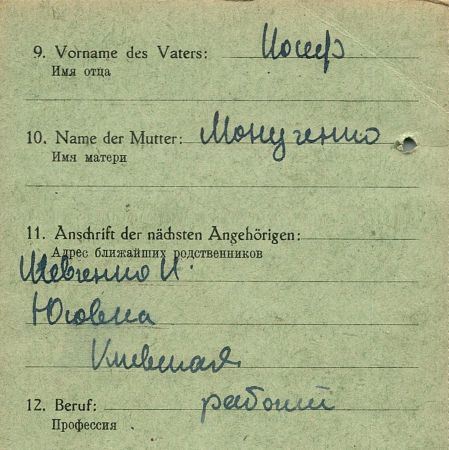 9. Vorname des Vaters: Иосиф
Имя отца
10. Name der Mutter: Монученко
Имя матери
11. Anschrift der nächsten Angehörigen:
Адрес ближайших родственников
Шевченко И.
Юговка
Киевская
12. Beruf: рабочий
Профессия